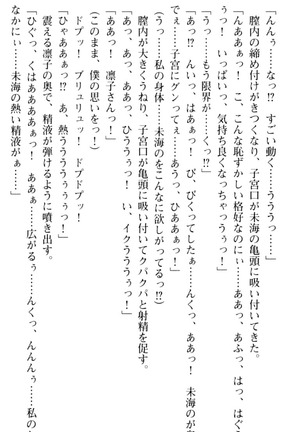 「んんぅ……なっ？　すごい動く……ううう……」
膣内の締め付けがきつくなり、子宮口が未海の亀頭に吸い付いてきた。
「んああぁっ！　こ、こんな恥ずかしい格好なのにぃ……ああっ、あふっ、はっ、はぐ
ぅっ！　いっぱいっ、気持ち良くなっちゃっうぅっ！
「うっ……もう限界が……くっ!?」
「あっ？　んいっ、はあぁっ！　び、びくってしたぁ……んくっ、ああっ！　未海のが
でぇ……子宮にグンってぇ……あうっ、ひああぁっ！
（うっ……私の身体……未海のをこんなに欲しがってるっ!?）
膣内が大きくうねり、子宮口が亀頭に吸い付いてクパクパと射精を促す。
「あっ、ああっ、ああっ、ひううぅっ！　い、イクううううっ！」
「ああっ！　凛子さんっ！」
（このまま、僕の思いをっ！）
ドプッ！　ブリュリュッ！　ドプドプッ！
「ひゃああぁっ!?　あ、熱うううううぅぅっ！」
震える凛子の奥で、精液が弾けるように噴き出す。
「ひぐっ、くはああぁあぁっ！　ああぁ……広がるぅ……んくっ、んんんぅ……私の
なかにぃ……未海の熱い精液がぁ……」